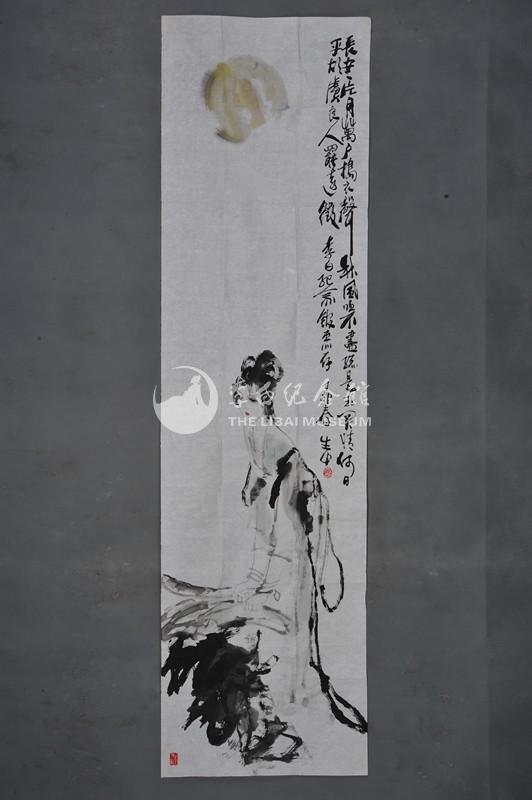 長安一片月萬戶搗衣聲 秋風吹不盡總是玉關情何日
平胡虜良人罷遠徵 李白紀念館惠存
李白纪念馆
THE LIBAI MUSEUM